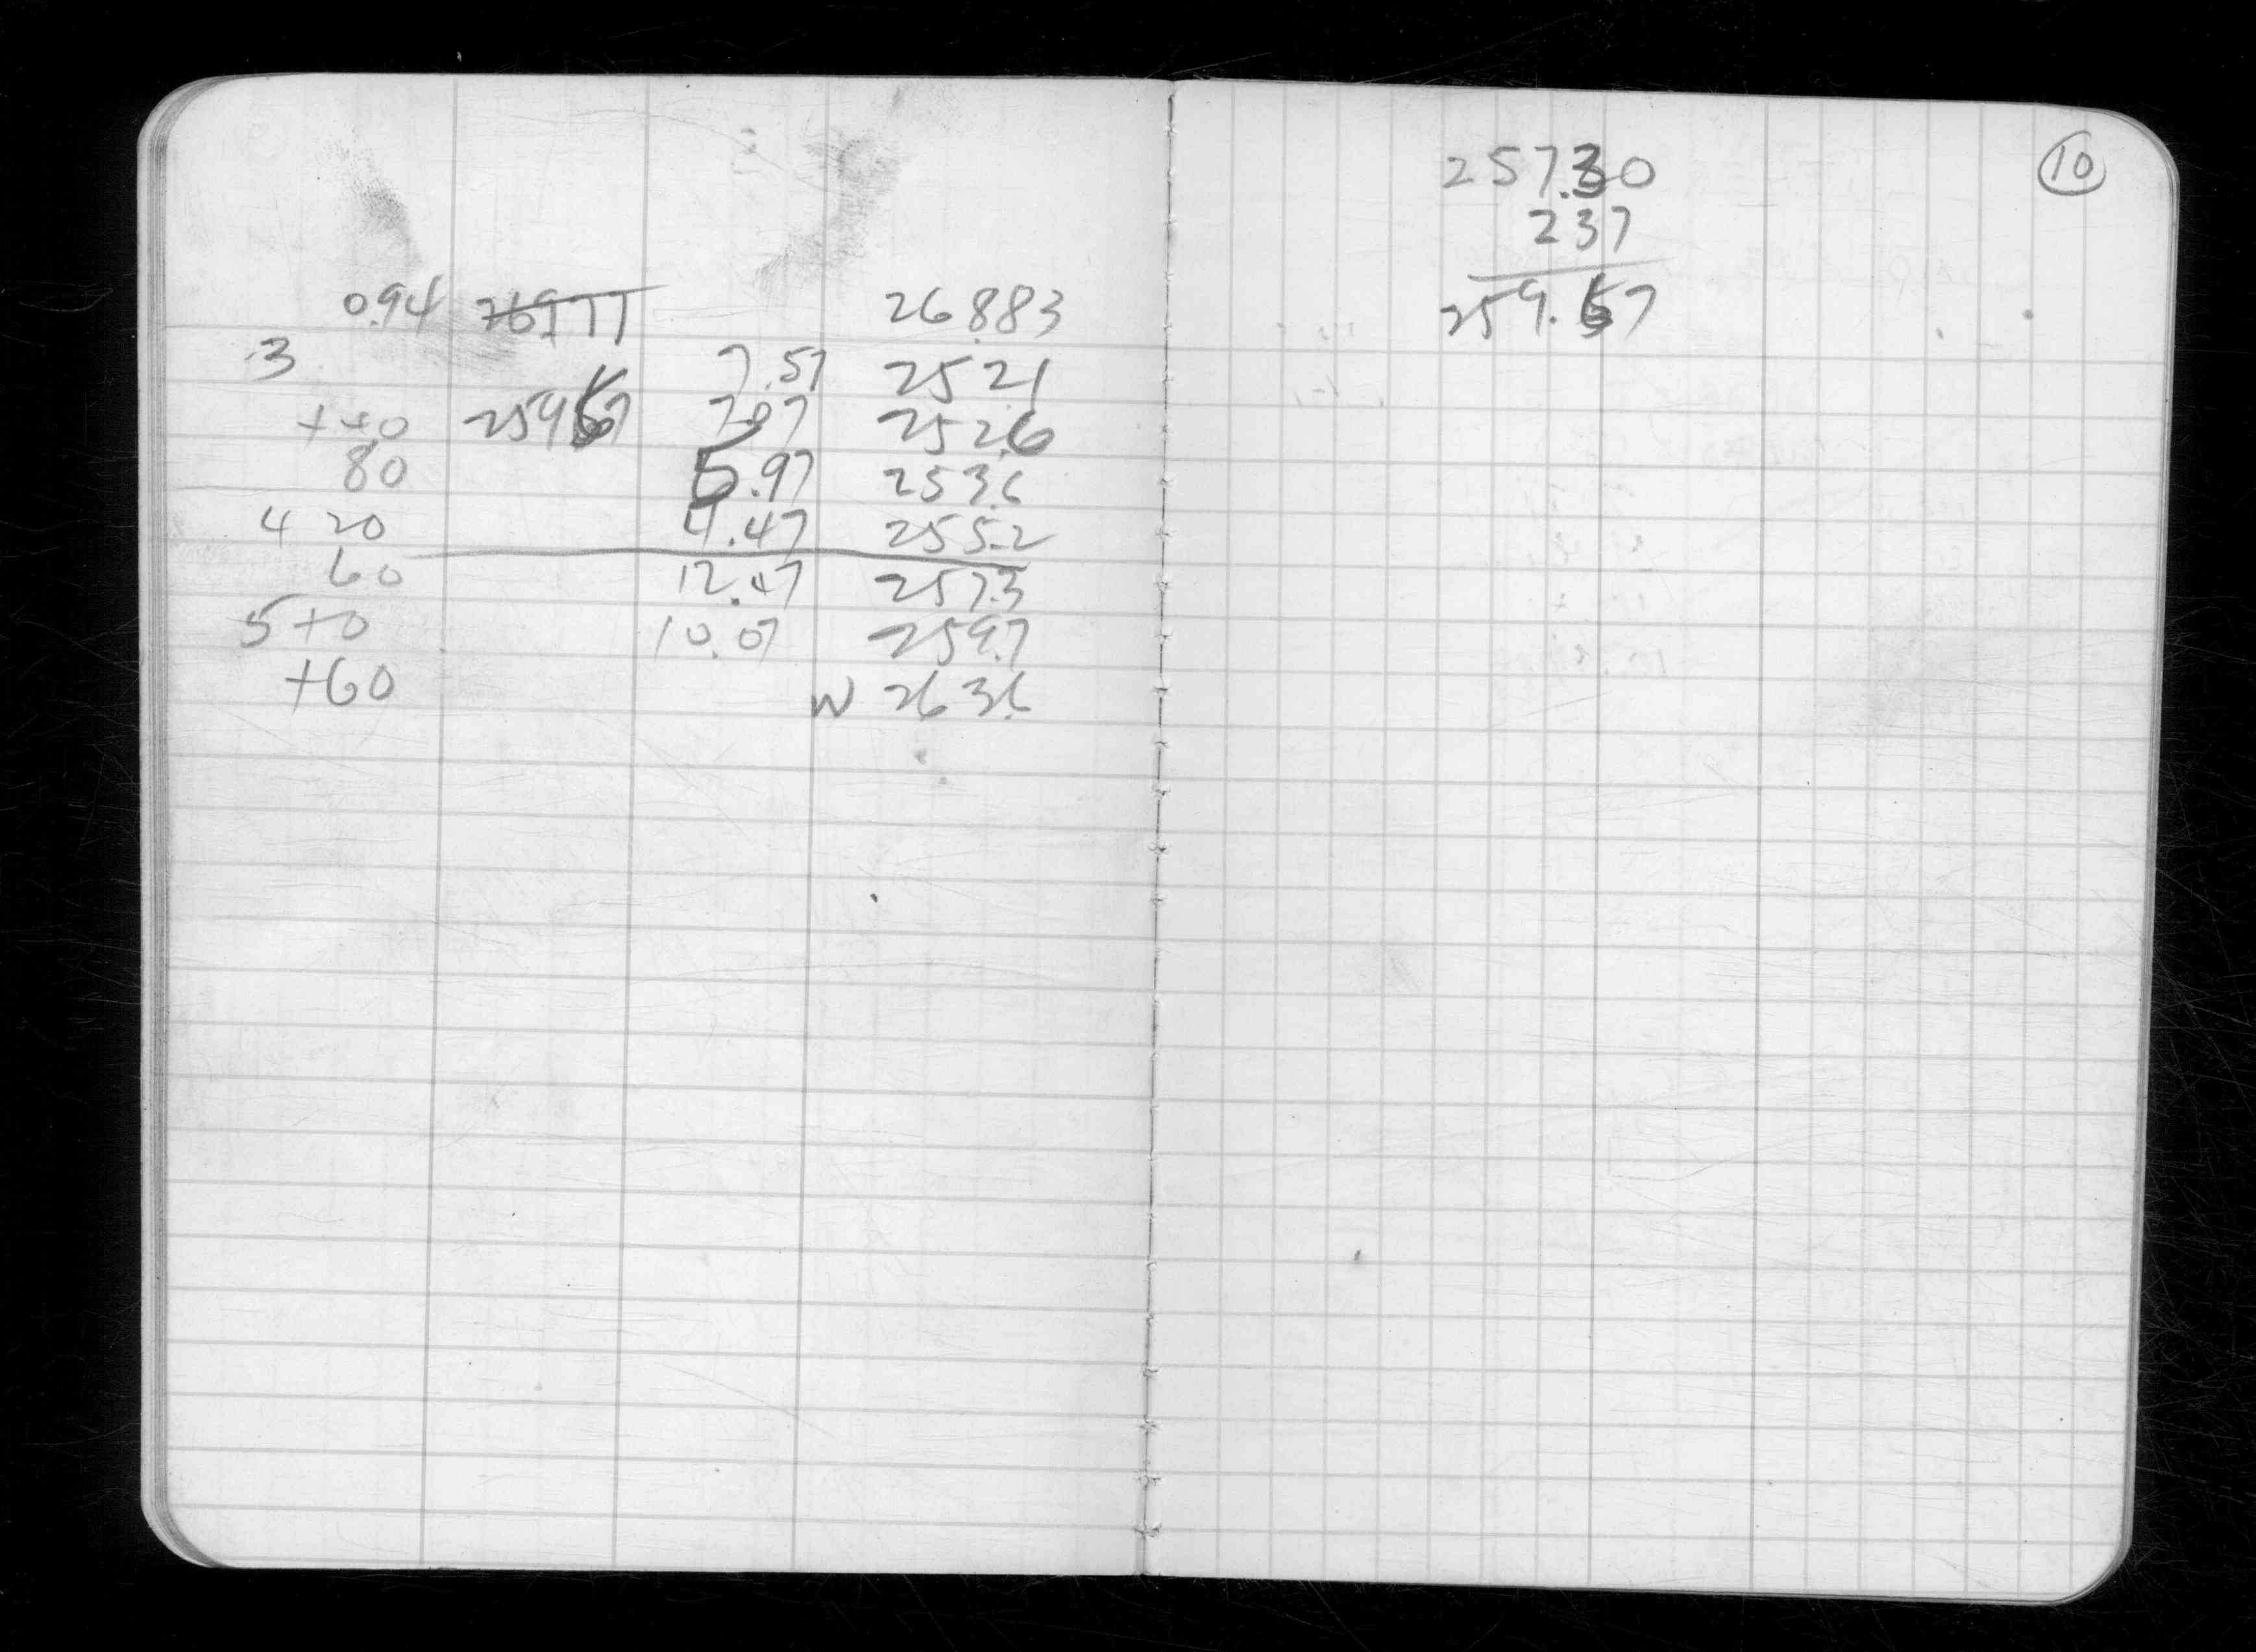 0.94 26977 26.883
3 7.57 252.1
++0 259.67 7.07 252.6
80 5.97 253.6
4 20 4.47 255.2
60 12.47 257.3
5+0 10.07 259.7
+60 W 263.6
10
257.30
237
259.67